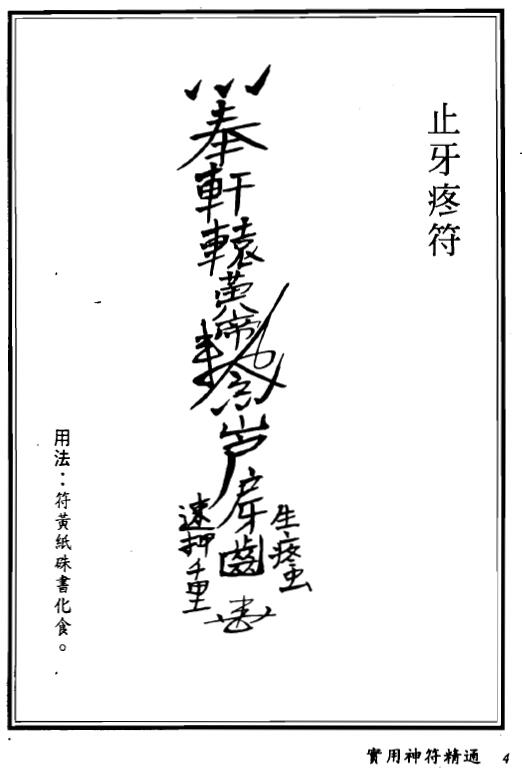 止牙疼符
奉軒轅黃帝
牙齒
生疼虫
速押千里
用法：符黃紙硃書化食。
實用神符精通 4